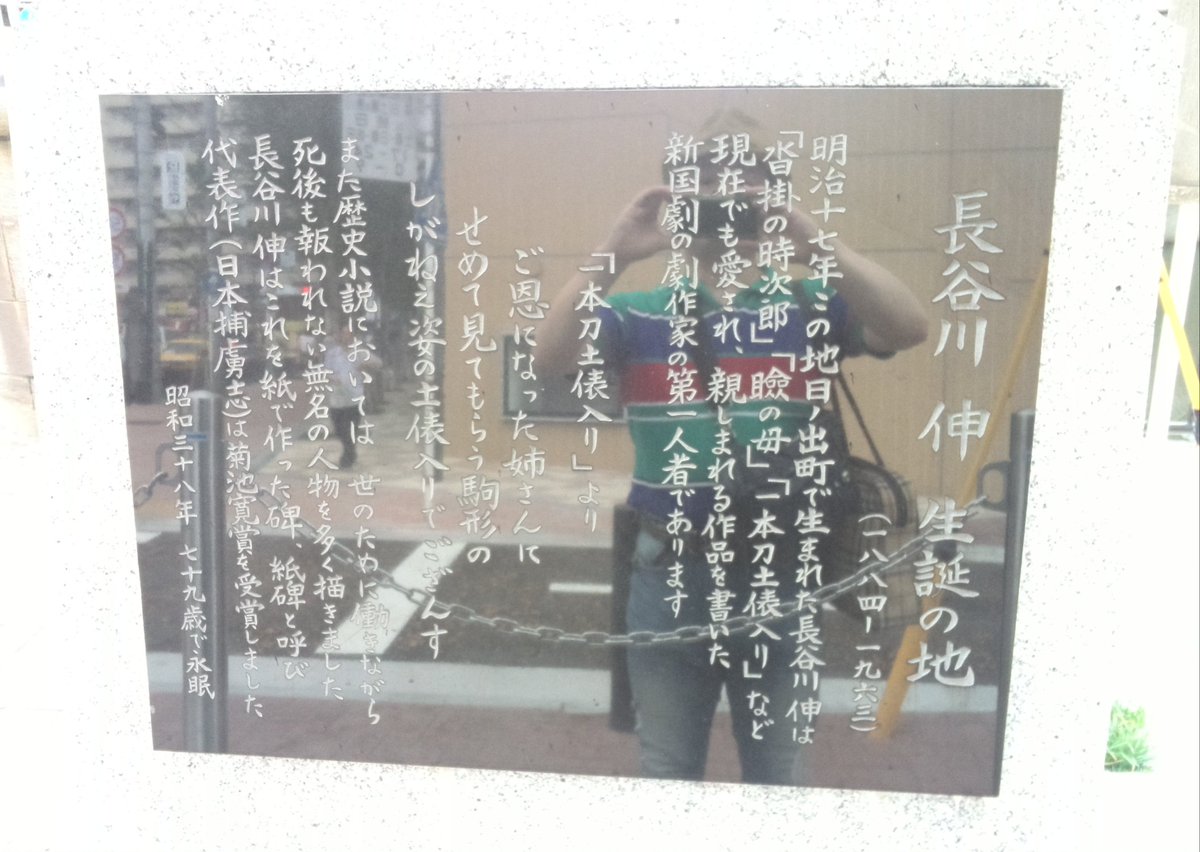 長谷川 伸 生誕の地
(一八八四ー一九六三)
明治十七年この地日ノ出町で生まれた長谷川 伸は
「沓掛の時次郎」「瞼の母」「一本刀土俵入り」など
現在でも愛され、親しまれる作品を書いた
新国劇の劇作家の第一人者であります
「一本刀土俵入り」より
ご恩になった姉さんに
せめて見てもらう駒形の
しがねえ姿の土俵入りでござんす
また歴史小説においては 世のために働きながら
死後も報われない無名の人物を多く描きました
長谷川 伸はこれを紙で作った碑、紙碑と呼び
代表作(日本捕虜志)は菊池寛賞を受賞しました
昭和三十八年 七十九歳で永眠